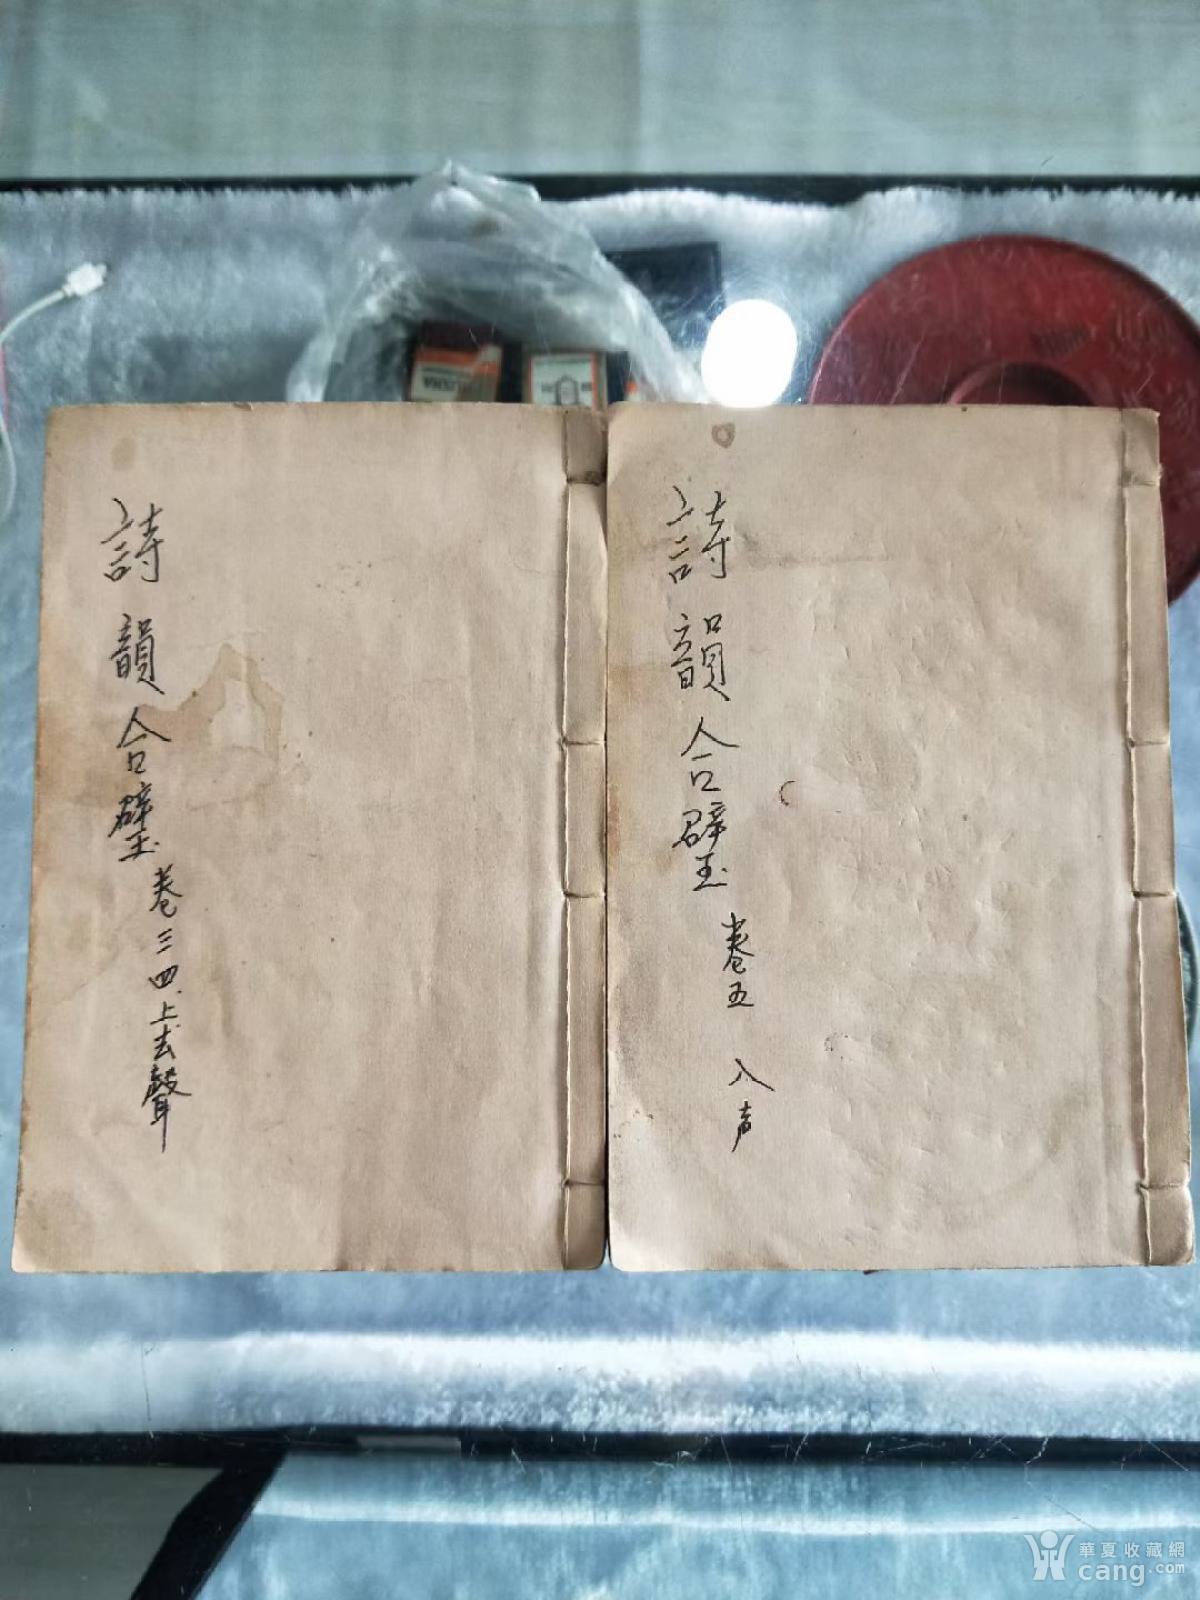 詩韻合璧 卷三四、上去聲
詩韻合璧 卷五 入声
華夏收藏網
cang.com